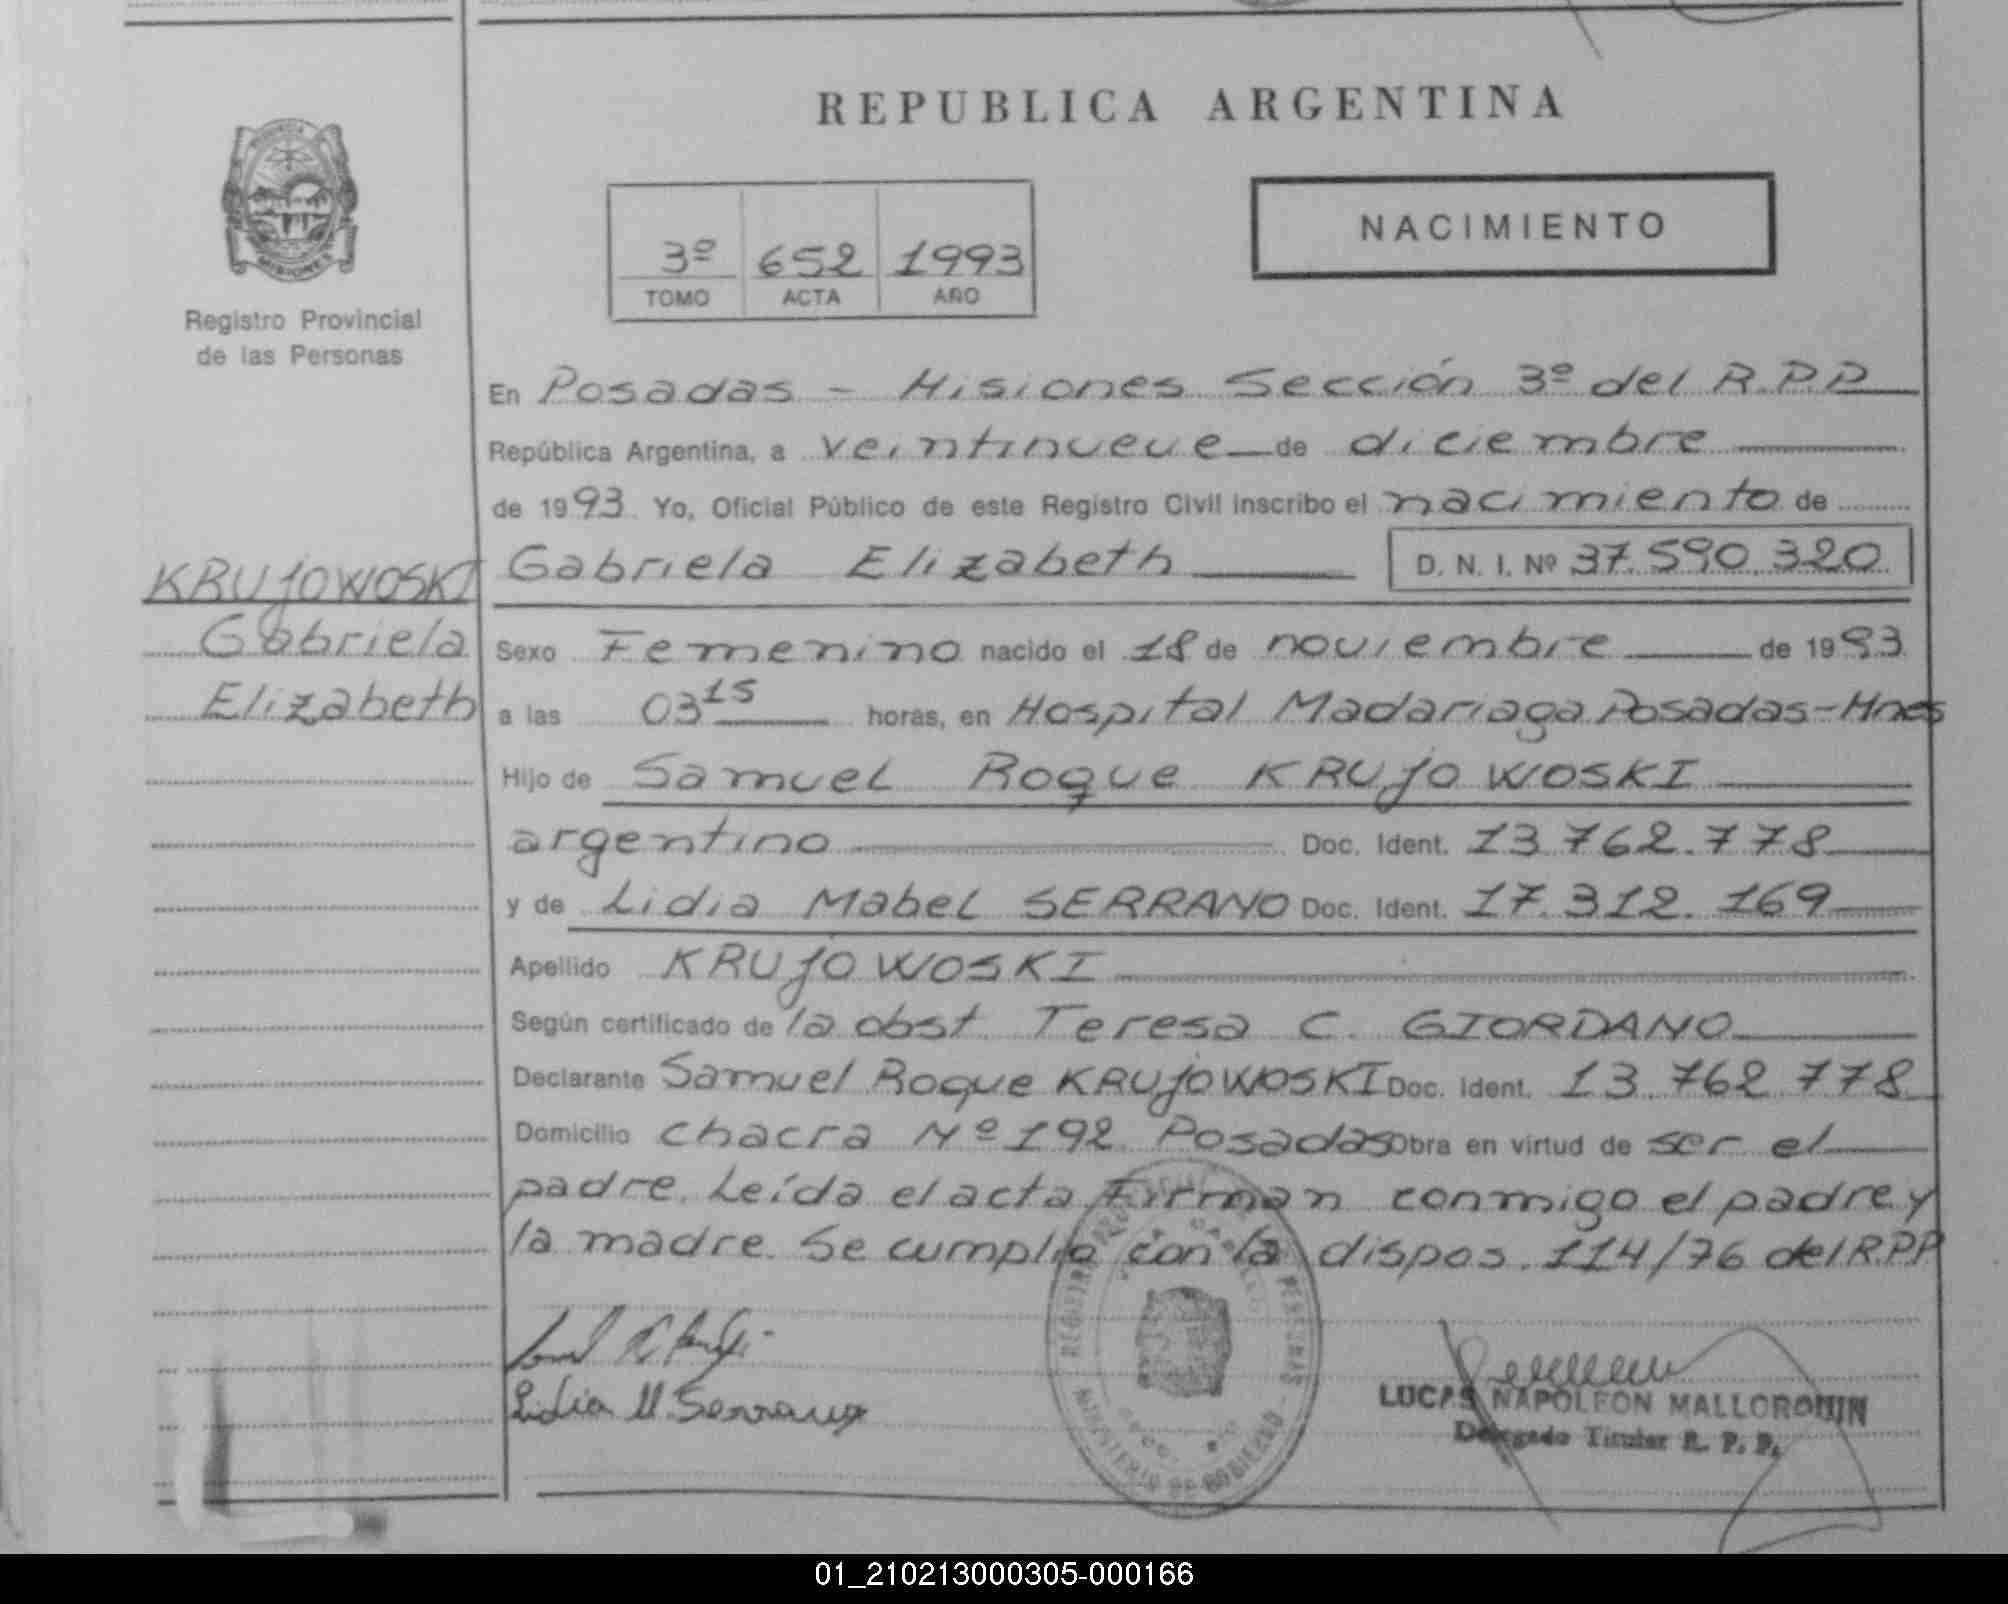 REPUBLICA ARGENTINA
NACIMIENTO
3º 652 1993
TOMO ACTA AÑO
MISIONES
Registro Provincial
de las Personas
En Posadas - Misiones Sección 3º del R.P.P
República Argentina, a veintinueve de diciembre
de 1993 Yo, Oficial Público de este Registro Civil inscribo el nacimiento de
KRUJOWOSKI
Gabriela
Elizabeth
Gabriela Elizabeth D. N. I. Nº 37.590.320
Sexo Femenino nacido el 18 de noviembre de 1993
a las 03 15 horas, en Hospital Madariaga Posadas-Mnes
Hijo de Samuel Roque KRUJOWOSKI
argentino Doc. Ident. 13.762.778
y de Lidia Mabel SERRANO Doc. Ident. 17.312.169
Apellido KRUJOWOSKI
Según certificado de la obst Teresa C. GIORDANO
Declarante Samuel Roque KRUJOWOSKI Doc. Ident. 13.762.778
Domicilio chacra Nº 192 Posadas Obra en virtud de ser el
padre. Leída el acta Firman conmigo el padre y
la madre. Se cumplio con la dispos. 114/76 del R.P.P
Lidia M. Serrano
MINISTERIO DE GOBIERNO
LUCAS NAPOLEON
Delegado Titular R. P. P.
01_210213000305-000166